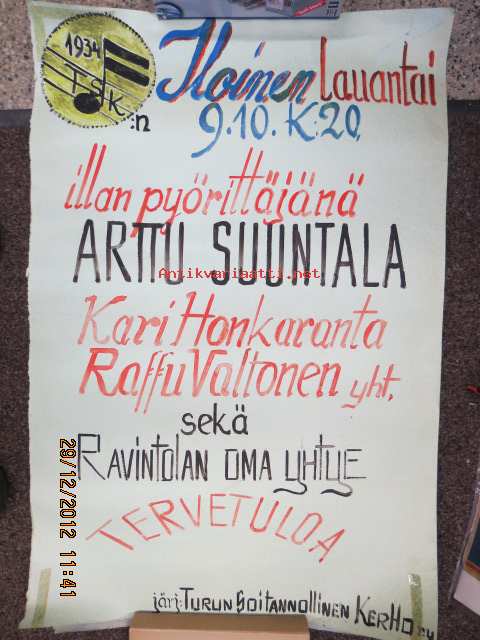 1934
TSK
:n
Iloinen lauantai
9.10. K:20,
illan pyörittäjänä
ARTTU SUUNTALA
Antikvariaatti.net
Kari Honkaranta
Raffu Valtonen yht.
sekä
RAVINTOLAN OMA yhtye
TERVETULOA
järj: TURUN SOITANNOLLINEN KERHO
29/12/2012 11:41